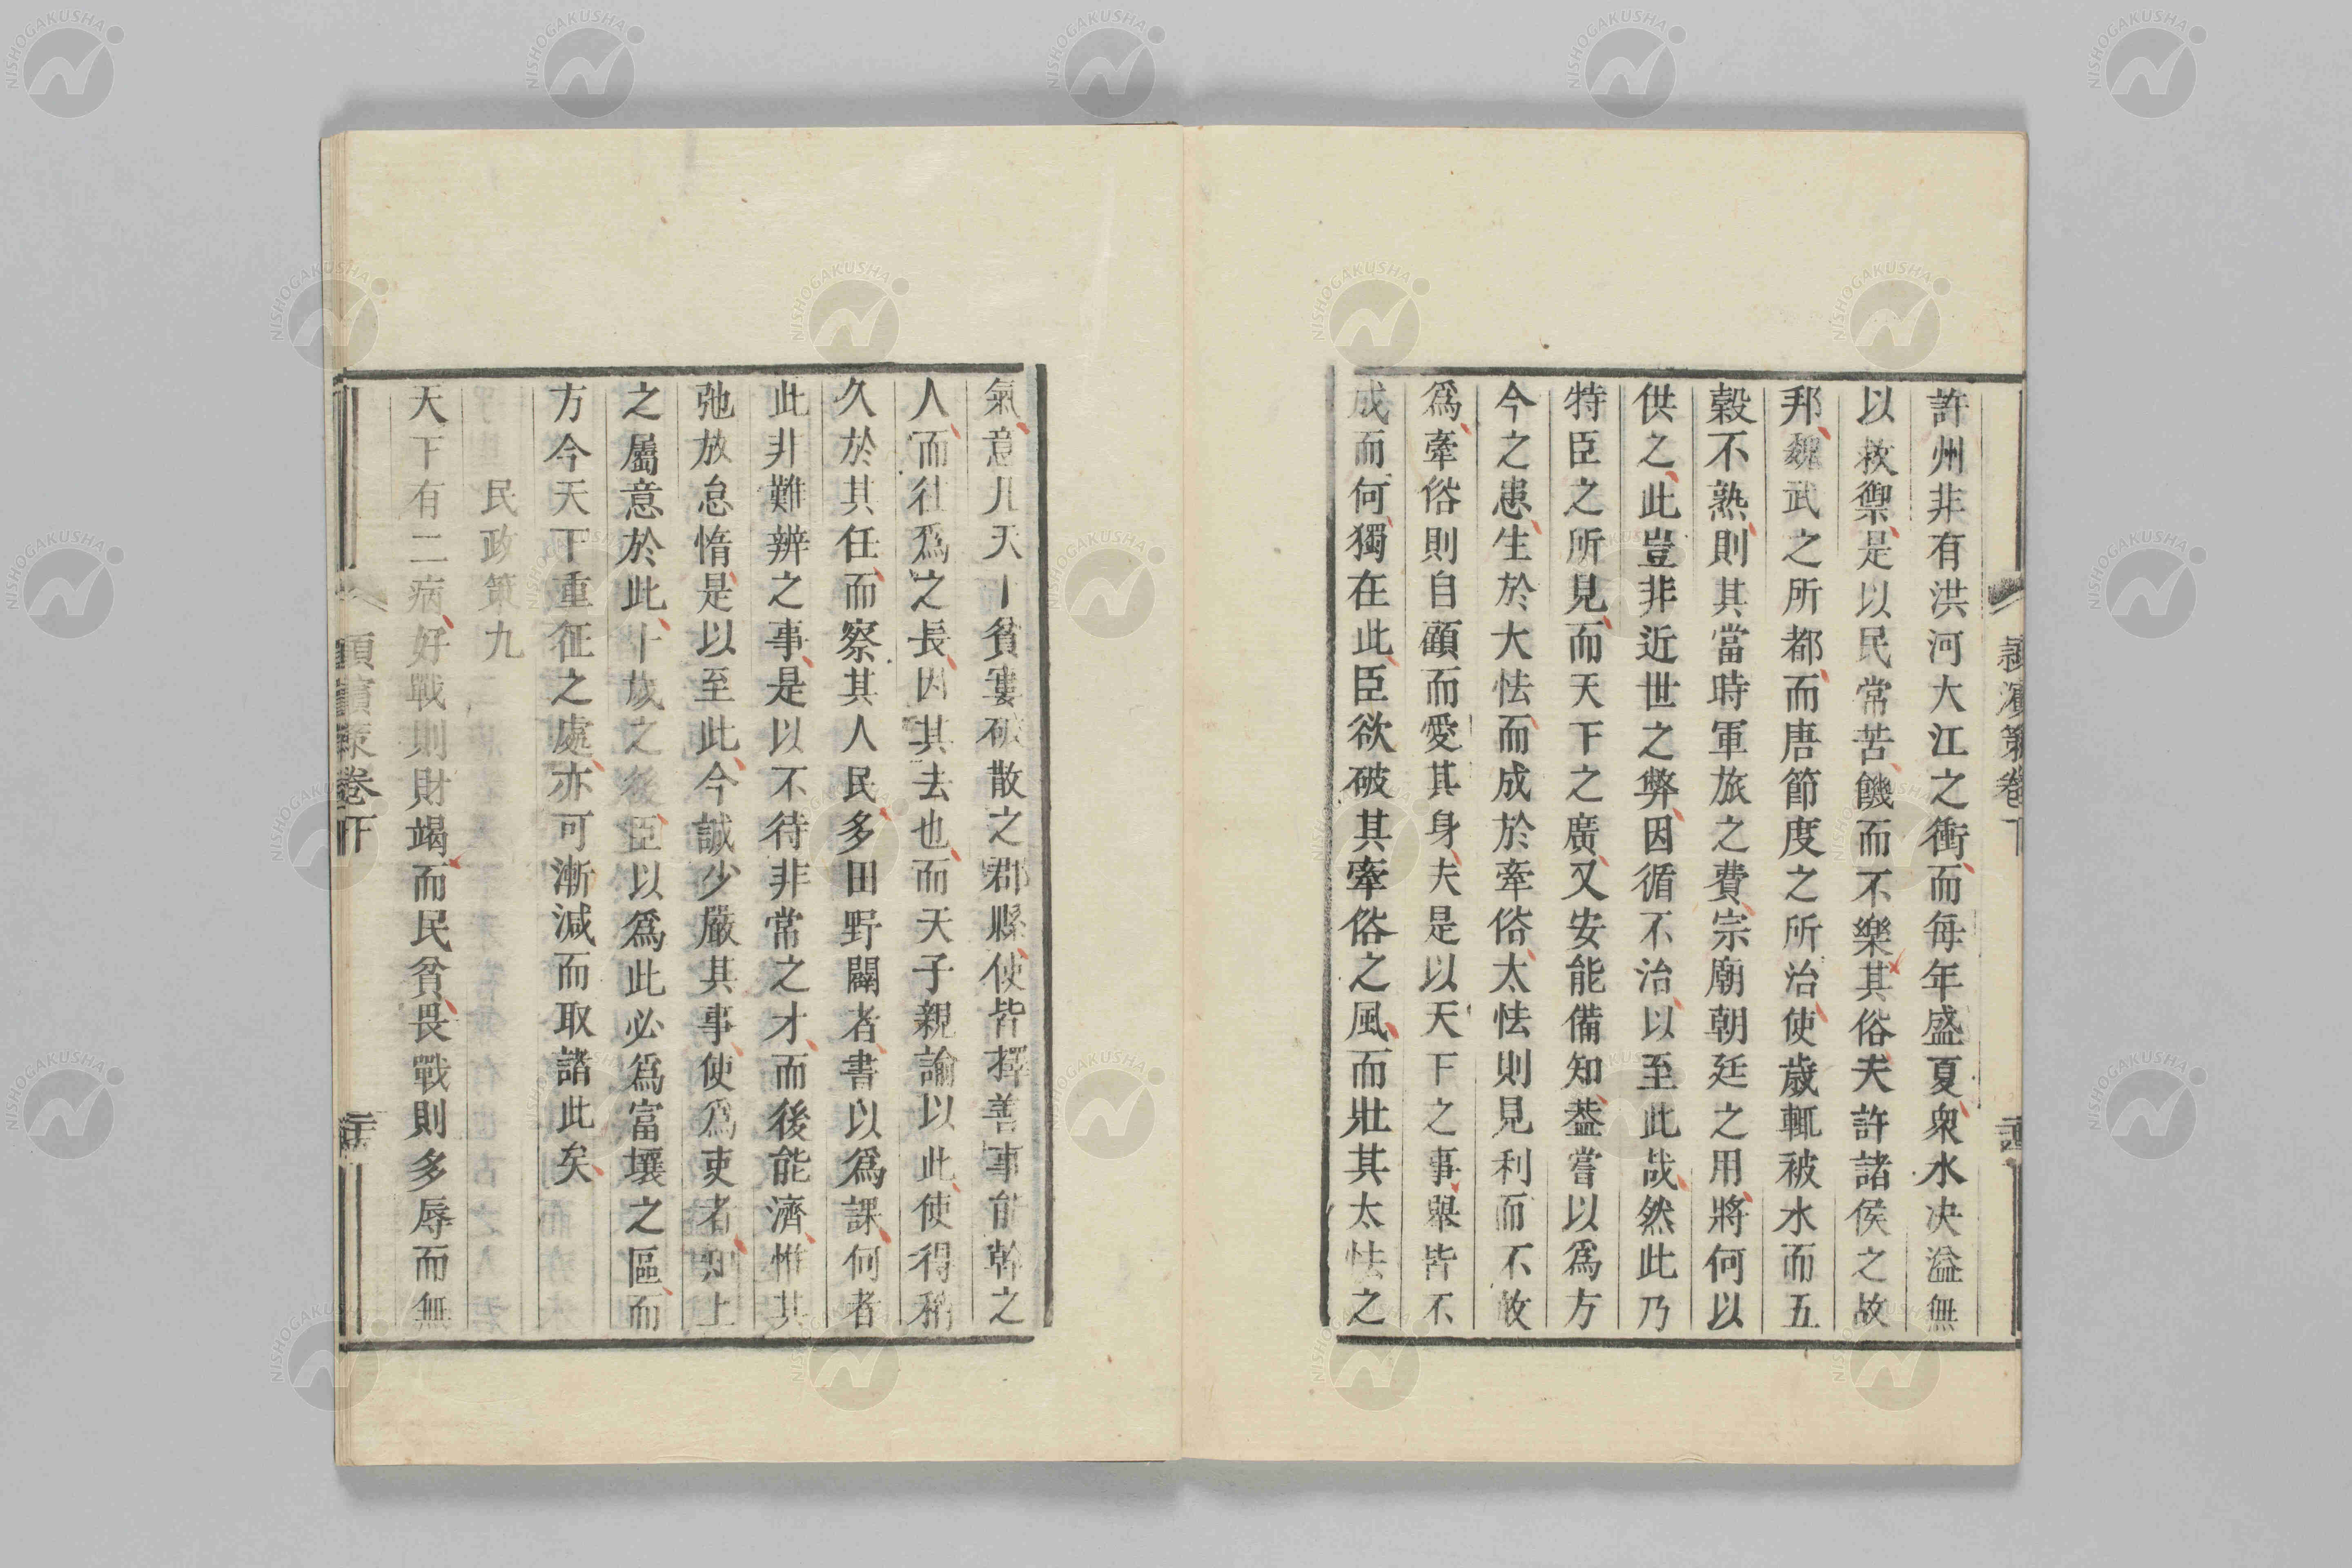 許州非有洪河大江之衝而每年盛夏衆水决溢無
以救禦是以民常苦饑而不樂其俗夫許諸侯之故
邦魏武之所都而唐節度之所治使歲輒被水而五
穀不熟則其當時軍旅之費宗廟朝廷之用將何以
供之此豈非近世之弊因循不治以至此哉然此乃
特臣之所見而天下之廣又安能備知葢嘗以爲方
今之患生於大怯而成於牽俗太怯則見利而不敢
爲牽俗則自顧而愛其身夫是以天下之事舉皆不
成而何獨在此臣欲破其牽俗之風而壯其太怯之
氣意凡天下貧寠破散之郡縣使皆擇善事能幹之
人而往爲之長因其去也而天子親諭以此使得稍
久於其任而察其人民多田野闢者書以爲課何者
此非難辨之事是以不待非常之才而後能濟惟其
弛放怠惰是以至此今誠少嚴其事使爲吏者知上
之屬意於此十歲之後臣以爲此必爲富壤之區而
方今天下重征之處亦可漸減而取諸此矣
民政策九
天下有二病好戰則財竭而民貧畏戰則多辱而無
潁濱策卷下
NISHOGAKUSHA